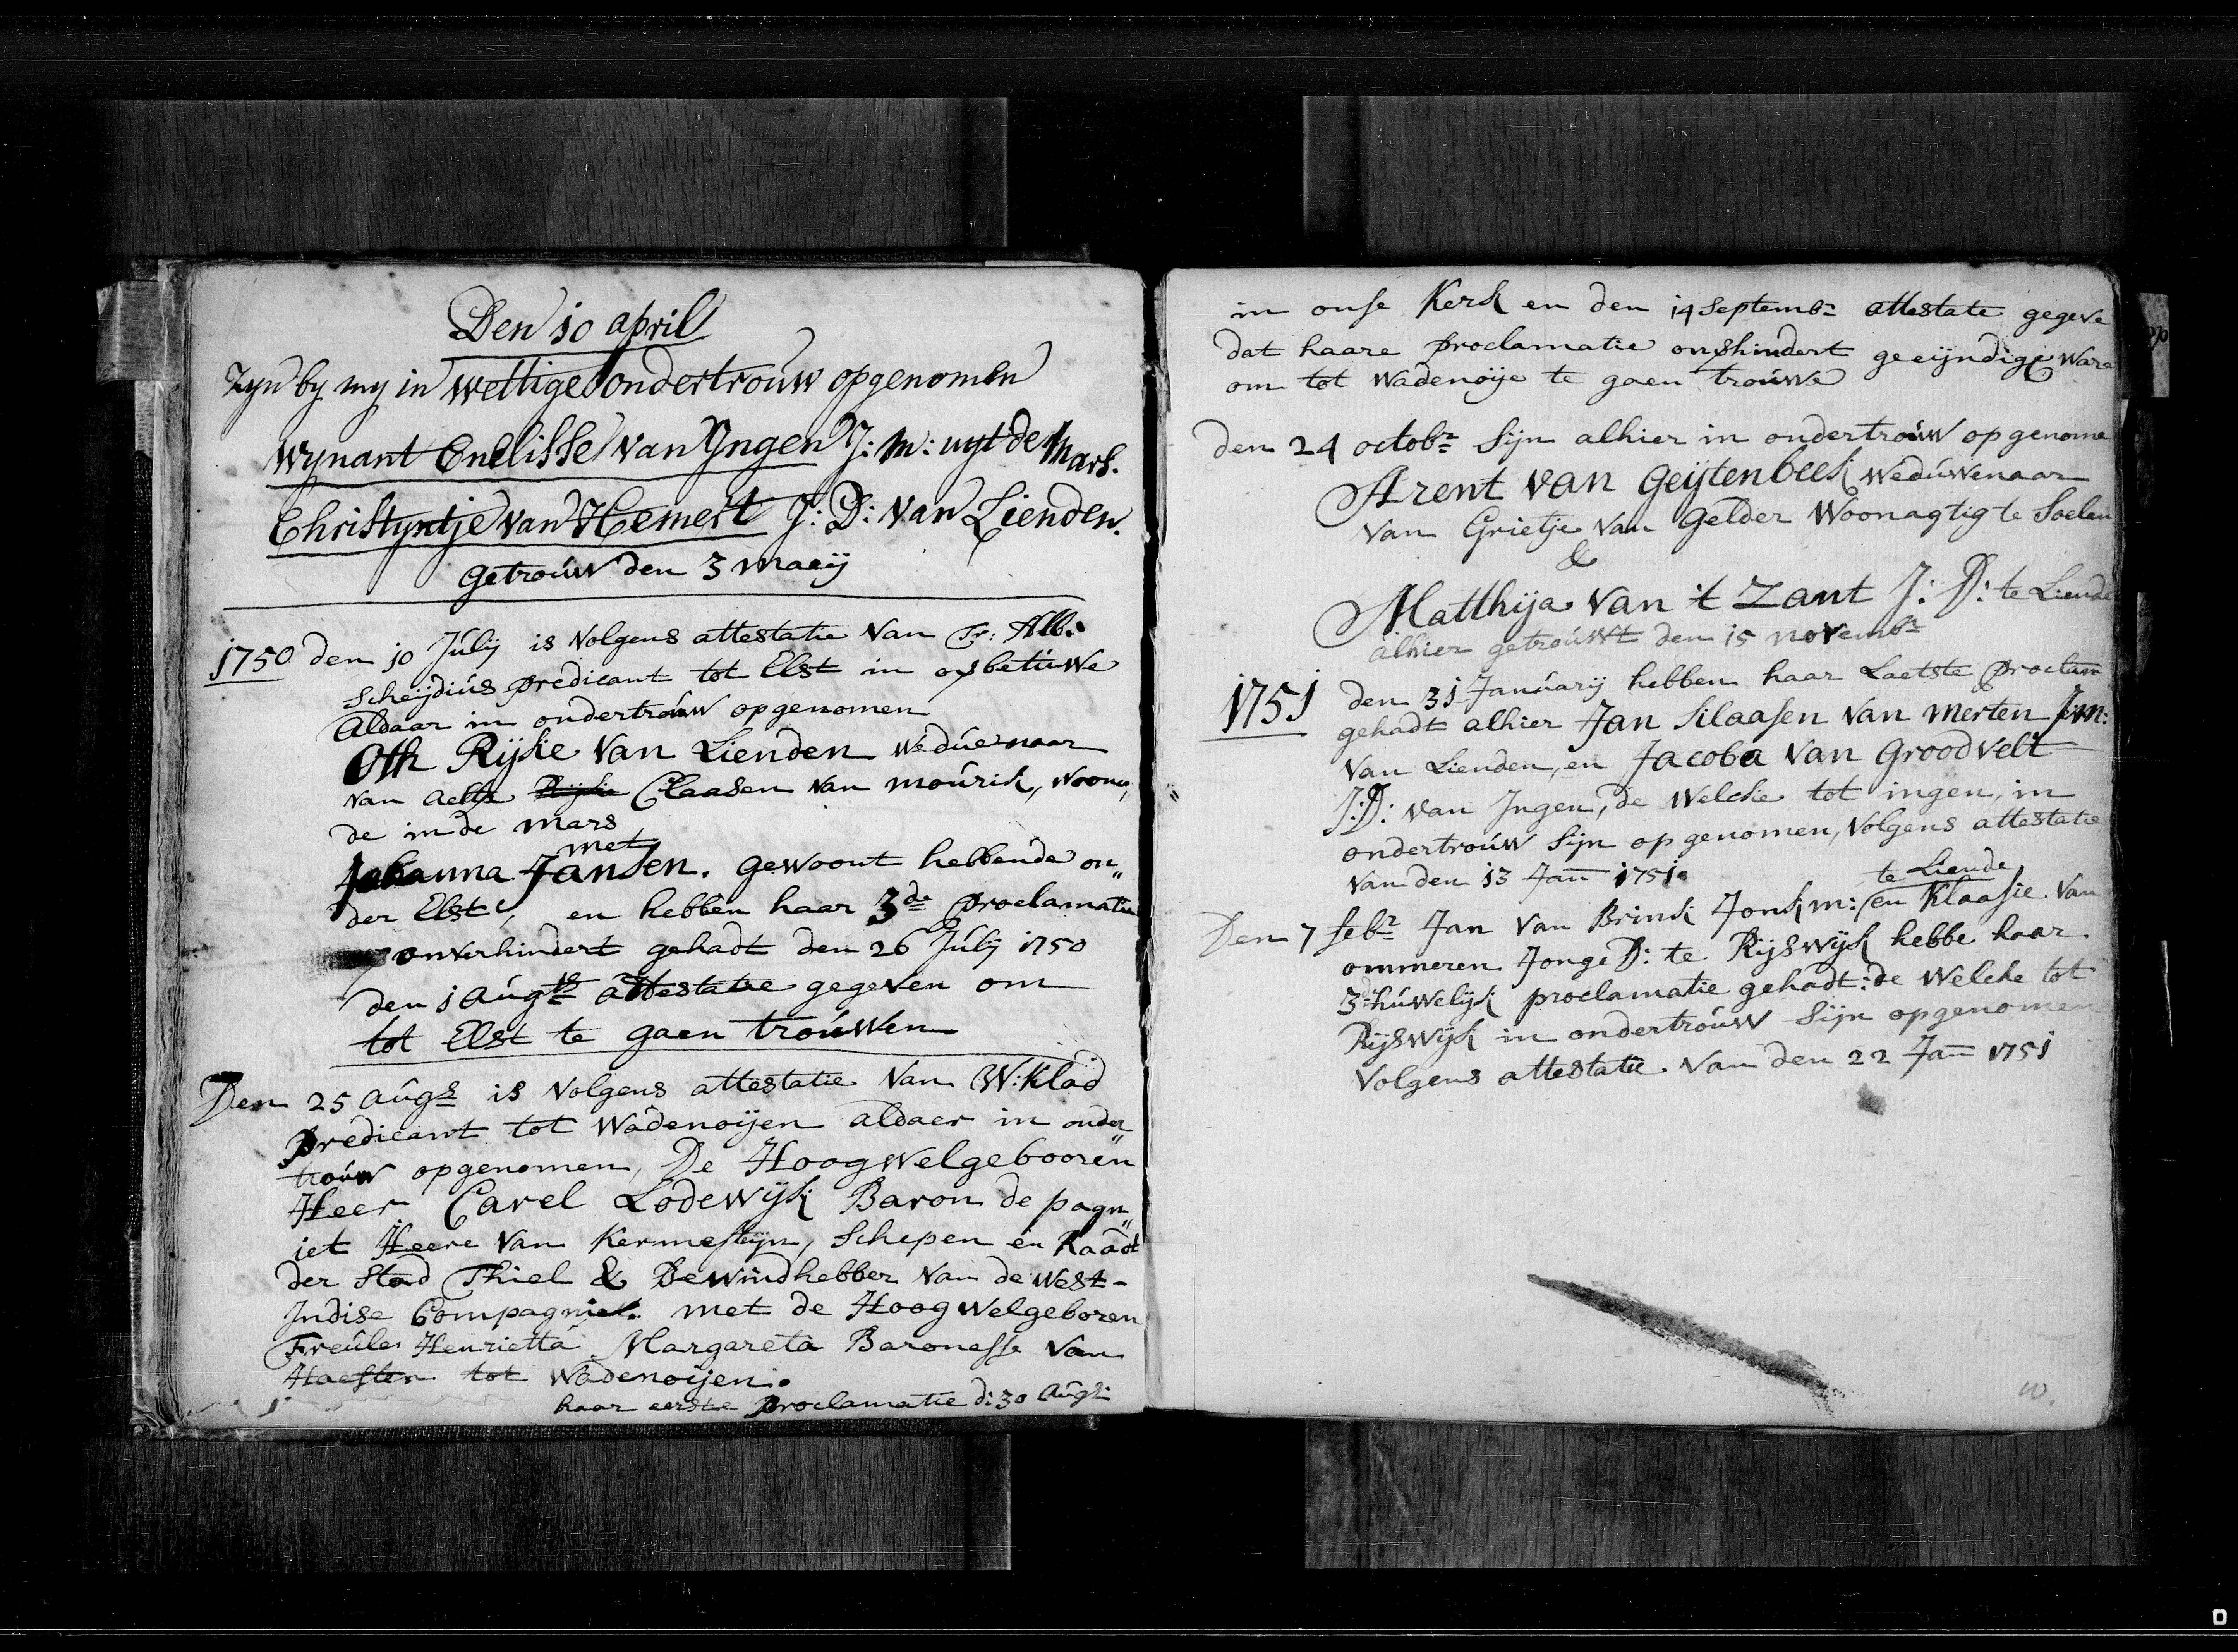 Den 10 april
Zyn by my in wettige ondertrouw opgenomen
Wynant Enclisse van Yngen J: M: uyt de Mars.
Christyntje van Hemert J: D: van Lienden.
getrouw den 3 maeij
1750 den 10 Julij is volgens attestatie van Fr: Alb:
Scheijdius predicant tot Elst in overbetuwe
aldaar in ondertrouw opgenomen
Oth Rijke van Lienden weduenaar
van Claasen van mourik, woonen„
de in de mars
met
Johanna Jansen. gewoont hebbende on„
der Elst, en hebben haar 3de proclamatie
onverhindert gehadt den 26 Julij 1750
den 1 augts attestatie gegeven om
tot Elst te gaen trouwen
Den 25 augs is volgens attestatie van W: Klad
Predicant tot Wadenoijen aldaer in onder„
trouw opgenomen, De Hoogwelgebooren
Heer Carel Lodewijk Baron de pagn„
iet Heere van Kermestijn, Schepen en Raadt
der Stad Thiel & Bewindhebber van de West-
Indise Compagnie. met de Hoog welgeboren
Freule Henrietta Margareta Baronesse van
Haeften tot Wadenoijen.
haar eerste proclamatie d: 30 augs:
in onse Kerk en den 14 Septembr attestate gegeve
dat haare proclamatie onverhindert geeijndigt ware
om tot wadenoije te gaen trouwe
den 24 octobr sijn alhier in ondertrouw opgenome
Arent van geijtenbeek weduwenaar
van Grietje van Gelder woonagtig te Soelen
&
Matthija van 't Zant J: D: te Liende
alhier getrouwt den 15 novembr
1751 den 31 Januarij hebben haar Laetste proclam
gehadt alhier Jan Klaasen van merten J:m:
van Lienden, en Jacoba van Groodvelt
J: D: van Ingen, de welcke tot ingen, in
ondertrouw sijn opgenomen, volgens attestatie
van den 13 Jan 1751.
te Liende
Den 7 febr Jan van Brink Jonk m: en Klaasie van
ommeren Jonge D: te Rijswijk hebbe haar
3de huwelijk proclamatie gehadt: de welcke tot
Rijswijk in ondertrouw sijn opgenomen
volgens attestatie van den 22 Jan 1751